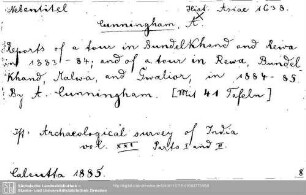 Nebentitel Hist. Asiae 1638.
Cunningham, A.
Reports of a tour in Bundelkhand and Rewa
in 1883-84; and of a tour in Rewa, Bundel
khand, Malwa, and Gwalior, in 1884-85.
By A. Cunningham. [Mit 41 Tafeln]
Archaeological survey of India
vol. XXI Parts I and II.
Calcutta 1885.
Sächsische Landesbibliothek -
Staats- und Universitätsbibliothek Dresden